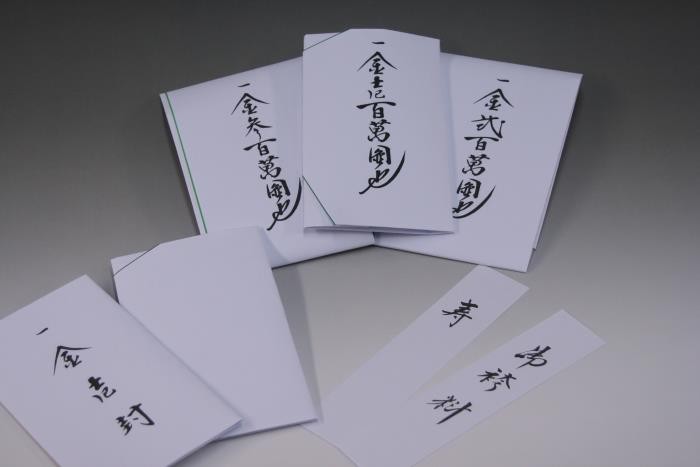 一金参百萬圓也
一金壱百萬圓也
一金弐百萬圓也
一金壱封
寿
御袴料